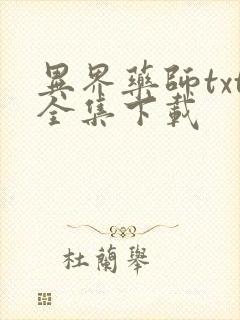 異界藥師txt
全集下載
杜蘭舉